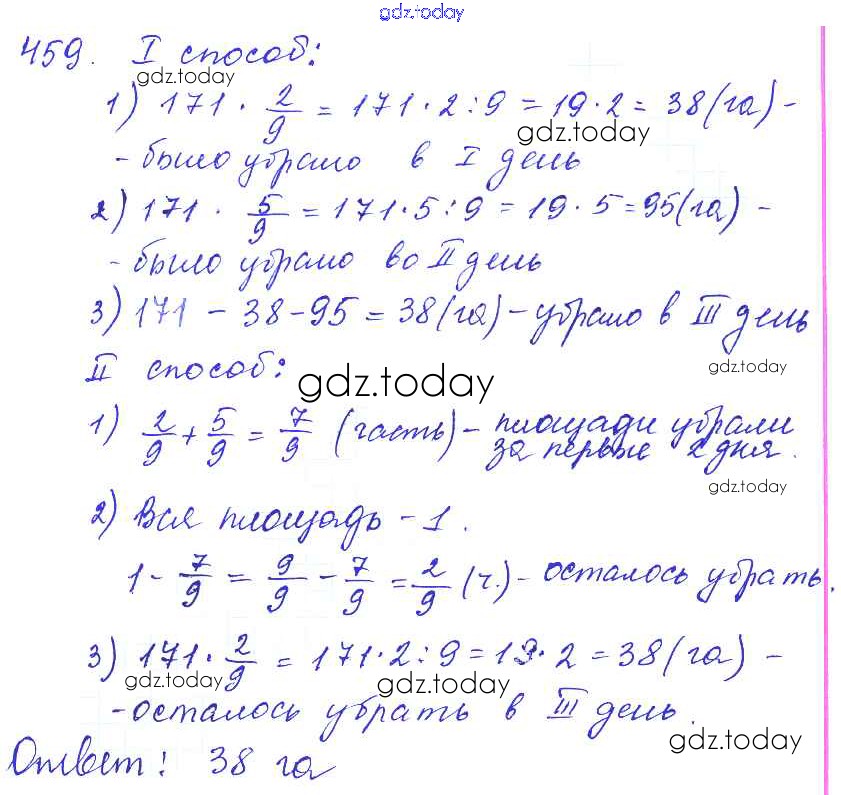 gdz.today
459. I способ:
gdz.today
1) 171 · 2/9 = 171 · 2 : 9 = 19 · 2 = 38 (га) -
gdz.today
- было убрано в I день
2) 171 · 5/9 = 171 · 5 : 9 = 19 · 5 = 95 (га) -
- было убрано во II день
3) 171 - 38 - 95 = 38 (га) - убрано в III день
II способ:
gdz.today
gdz.today
1) 2/9 + 5/9 = 7/9 (часть) - площади убрали
за первые 2 дня.
gdz.today
2) Вся площадь - 1.
1 - 7/9 = 9/9 - 7/9 = 2/9 (ч.) - осталось убрать.
3) 171 · 2/9 = 171 · 2 : 9 = 19 · 2 = 38 (га) -
gdz.today
gdz.today
- осталось убрать в III день.
gdz.today
Ответ: 38 га